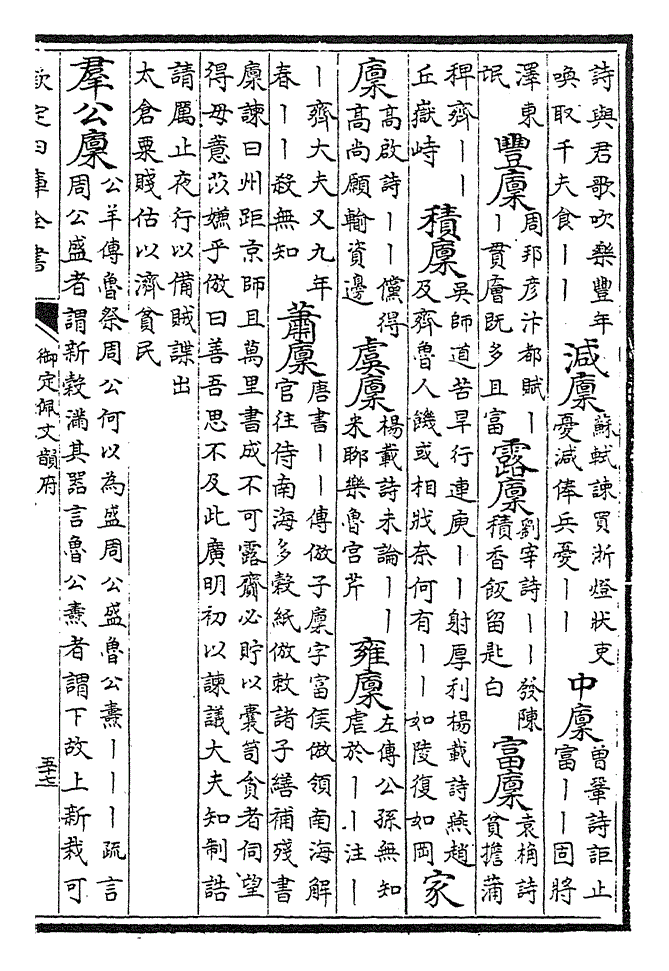 詩與君歌吹樂豐年
喚取千夫食丨丨
減廩
蘇軾諫買浙燈狀吏
憂減俸兵憂丨丨
中廩
曾鞏詩詎止
富丨丨固將
澤東
氓
豐廩
周邦彦汴都賦丨
丨貫廥既多且富
露廩
劉宰詩丨丨發陳
積香飯留匙白
富廩
袁桷詩
貧擔蒲
稗齊丨丨
丘嶽峙
積廩
吳師道苦旱行連庾丨丨射厚利楊載詩燕趙
及齊魯人饑或相戕奈何有丨丨如陵復如岡
家
廩
髙啟詩丨丨儻得
髙尚願輸資邊
虞廩
楊載詩未論丨丨
米聊樂魯宮芹
雍廩
左傳公孫無知
虐於丨丨注丨
丨齊大夫又九年
春丨丨殺無知
蕭廩
唐書丨丨傳倣子廩字富侯倣領南海解
官往侍南海多榖紙倣敕諸子繕補殘書
廩諫曰州距京師且萬里書成不可露齎必貯以囊笥貪者伺望
得毋薏苡嫌乎倣曰善吾思不及此廣明初以諫議大夫知制誥
請厲止夜行以備賊諜出
太倉粟賤估以濟貧民
羣公廩
公羊傳魯祭周公何以為盛周公盛魯公燾丨丨丨疏言
周公盛者謂新榖滿其器言魯公燾者謂下故上新裁可
欽定四庫全書
御定佩文韻府
五十七